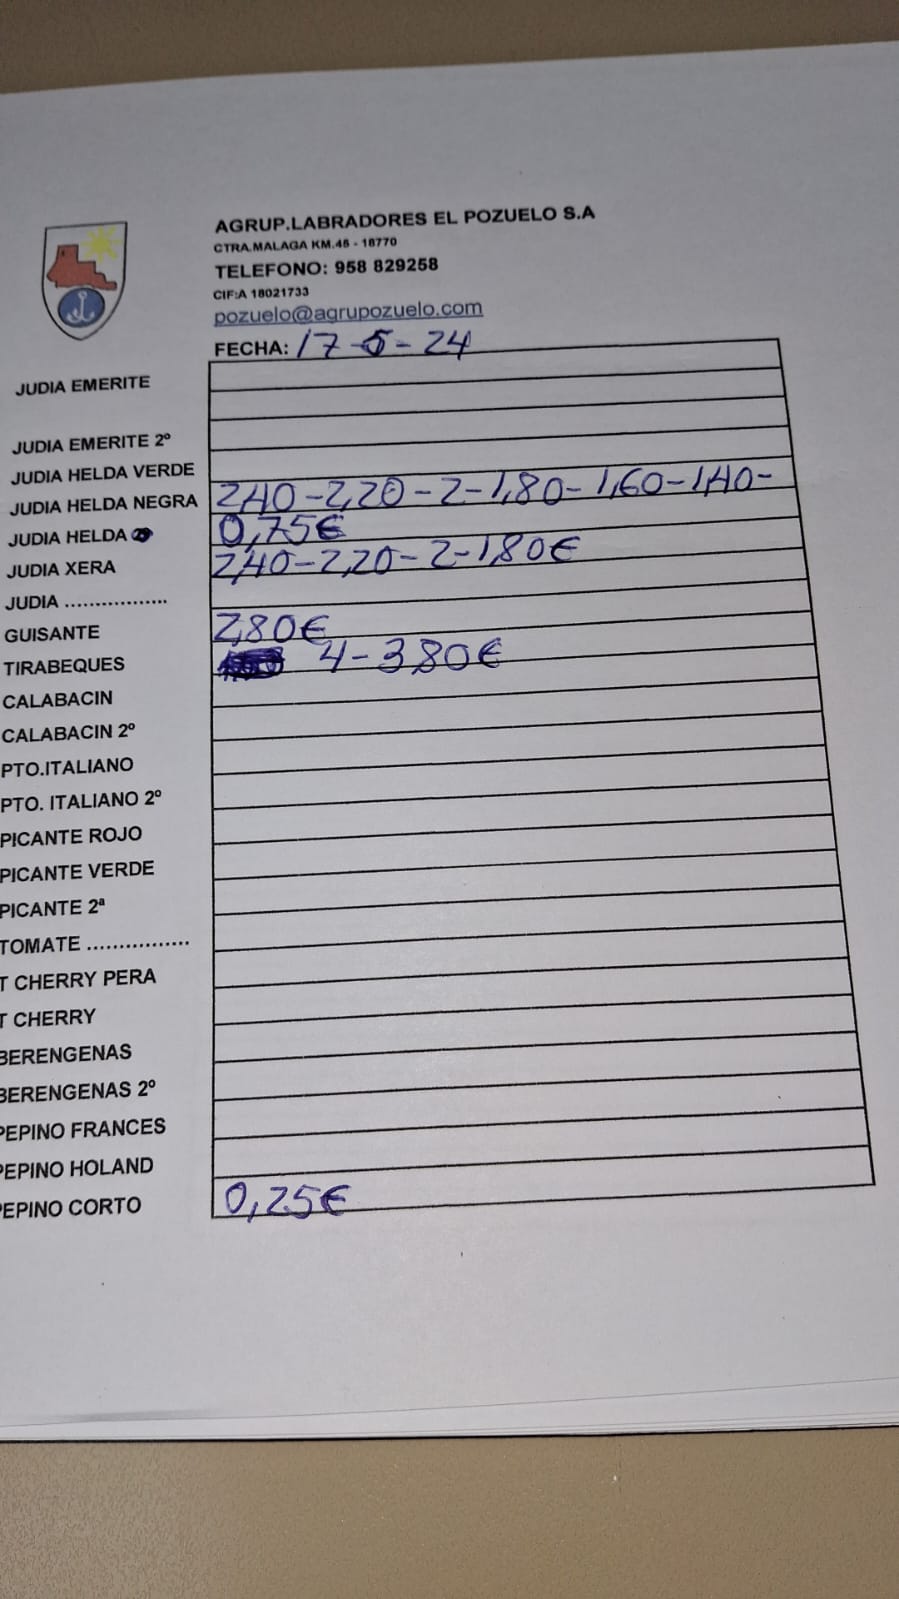 AGRUP.LABRADORES EL POZUELO S.A
CTRA.MALAGA KM.46 - 18770
TELEFONO: 958 829258
CIF:A 18021733
pozuelo@agrupozuelo.com
FECHA: 17-5-24
JUDIA EMERITE
JUDIA EMERITE 2º
JUDIA HELDA VERDE
JUDIA HELDA NEGRA 2,40-2,20-2-1,80-1,60-1,40-
JUDIA HELDA 0,75€
JUDIA XERA 2,40-2,20-2-1,80€
JUDIA .................
GUISANTE 2,80€
TIRABEQUES 4-3,80€
CALABACIN
CALABACIN 2º
PTO.ITALIANO
PTO. ITALIANO 2º
PICANTE ROJO
PICANTE VERDE
PICANTE 2ª
TOMATE ................
T CHERRY PERA
T CHERRY
BERENGENAS
BERENGENAS 2º
PEPINO FRANCES
PEPINO HOLAND
PEPINO CORTO 0,25€